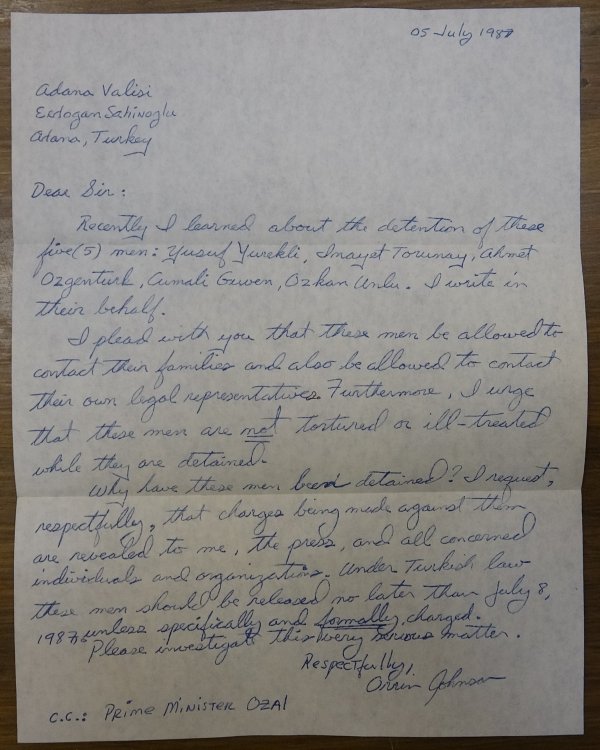 05 July 1987
Adana Valisi
Erdogan Sahinoglu
Adana, Turkey
Dear Sir:
Recently I learned about the detention of these
five(5) men: Yusuf Yurekli, Inayet Torunay, Ahmet
Ozgenturk, Cumali Guven, Ozkan Unlu. I write in
their behalf.
I plead with you that these men be allowed to
contact their families and also be allowed to contact
their own legal representatives. Furthermore, I urge
that these men are not tortured or ill-treated
while they are detained.
Why have these men been detained? I request,
respectfully, that charges being made against them
are revealed to me, the press, and all concerned
individuals and organizations. Under Turkish law
these men should be released no later than July 8,
1987 unless specifically and formally charged.
Please investigate this very serious matter.
Respectfully,
Orrin Johnson
c.c.: PRIME MINISTER OZAL